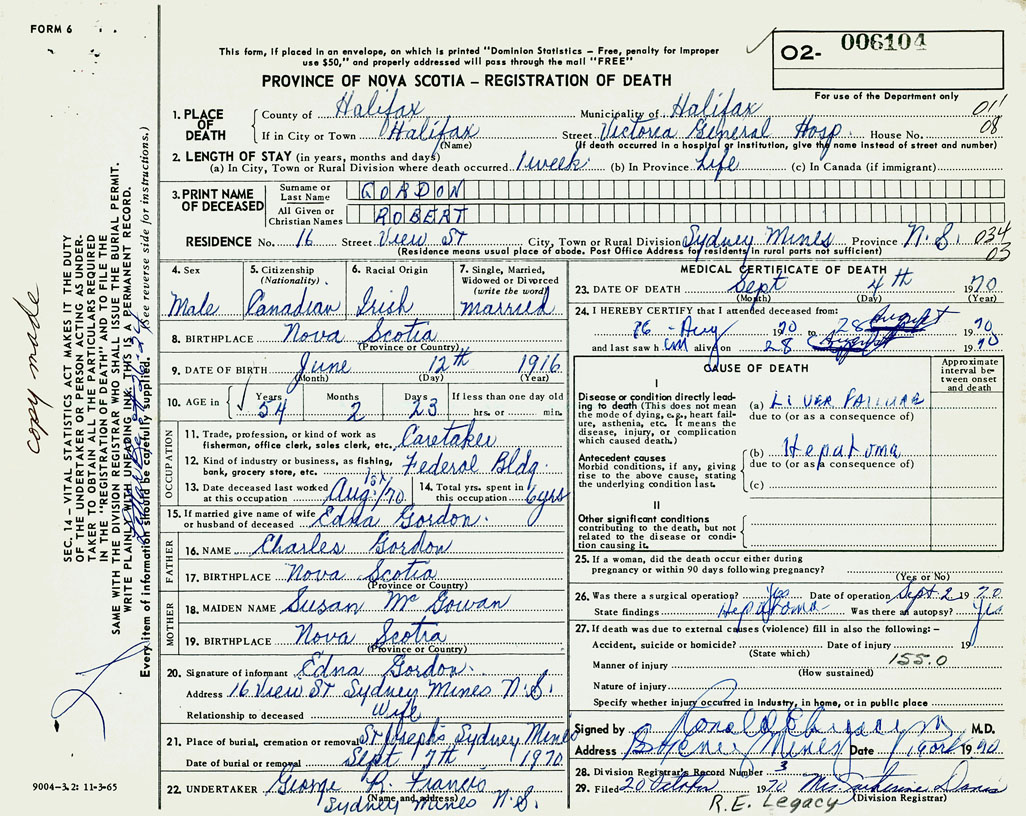 FORM 6
This form, if placed in an envelope, on which is printed "Dominion Statistics – Free, penalty for improper
use $50," and properly addressed will pass through the mail "FREE"
PROVINCE OF NOVA SCOTIA – REGISTRATION OF DEATH
O2- 006104
For use of the Department only
1. PLACE OF DEATH
County of Halifax Municipality of Halifax 011
If in City or Town Halifax Street Victoria General Hosp. House No. 08
(Name) (If death occurred in a hospital or institution, give the name instead of street and number)
2. LENGTH OF STAY (in years, months and days)
(a) In City, Town or Rural Division where death occurred 1 week (b) In Province Life (c) In Canada (if immigrant)
3. PRINT NAME OF DECEASED
Surname or Last Name GORDON
All Given or Christian Names ROBERT
RESIDENCE No. 16 Street View St City, Town or Rural Division Sydney Mines Province N.S. 034
(Residence means usual place of abode. Post Office Address for residents in rural parts not sufficient) 03
4. Sex Male
5. Citizenship (Nationality) Canadian
6. Racial Origin Irish
7. Single, Married, Widowed or Divorced (write the word) married
8. BIRTHPLACE Nova Scotia
(Province or Country)
9. DATE OF BIRTH June 12th 1916
(Month) (Day) (Year)
10. AGE in Years 54 Months 2 Days 23 If less than one day old hrs. or min.
OCCUPATION
11. Trade, profession, or kind of work as fisherman, office clerk, sales clerk, etc. Caretaker
12. Kind of industry or business, as fishing, bank, grocery store, etc. Federal Bldg.
13. Date deceased last worked at this occupation Aug. 1st/70
14. Total yrs. spent in this occupation 6 yrs
15. If married give name of wife or husband of deceased Edna Gordon.
FATHER
16. NAME Charles Gordon
17. BIRTHPLACE Nova Scotia
(Province or Country)
MOTHER
18. MAIDEN NAME Susan McGowan
19. BIRTHPLACE Nova Scotia
(Province or Country)
20. Signature of informant Edna Gordon.
Address 16 View St Sydney Mines N.S.
Relationship to deceased Wife
21. Place of burial, cremation or removal St Joseph's Sydney Mines
Date of burial or removal Sept 7th 1970
22. UNDERTAKER George R. Francis
(Name and address)
Sydney Mines N.S.
MEDICAL CERTIFICATE OF DEATH
23. DATE OF DEATH Sept 4th 1970
(Month) (Day) (Year)
24. I HEREBY CERTIFY that I attended deceased from:
Aug 1970 to 28 August 1970
and last saw h im alive on 28 August 1970
CAUSE OF DEATH
Approximate interval between onset and death
I
Disease or condition directly leading to death (This does not mean the mode of dying, e.g., heart failure, asthenia, etc. It means the disease, injury, or complication which caused death.)
(a) LIVER FAILURE
due to (or as a consequence of)
Antecedent causes
Morbid conditions, if any, giving rise to the above cause, stating the underlying condition last.
(b) Hepatoma
due to (or as a consequence of)
(c)
II
Other significant conditions
contributing to the death, but not related to the disease or condition causing it.
25. If a woman, did the death occur either during pregnancy or within 90 days following pregnancy?
(Yes or No)
26. Was there a surgical operation? Yes Date of operation Sept 2 1970
State findings Hepatoma Was there an autopsy? Yes
27. If death was due to external causes (violence) fill in also the following: –
Accident, suicide or homicide? Date of injury 19
(State which)
Manner of injury 155.0
(How sustained)
Nature of injury
Specify whether injury occurred in industry, in home, or in public place
Signed by M.D.
Address Sydney Mines Date 19
28. Division Registrar's Record Number 3
29. Filed 20 October 1970 Mrs. Catherine Davis
(Division Registrar)
R.E. Legacy
copy made
SEC. 14 – VITAL STATISTICS ACT MAKES IT THE DUTY
OF THE UNDERTAKER OR PERSON ACTING AS UNDER-
TAKER TO OBTAIN ALL THE PARTICULARS REQUIRED
IN THE "REGISTRATION OF DEATH" AND TO FILE THE
SAME WITH THE DIVISION REGISTRAR WHO SHALL ISSUE THE BURIAL PERMIT.
WRITE PLAINLY WITH UNFADING INK. THIS IS A PERMANENT RECORD.
Every item of information should be carefully supplied. (See reverse side for instructions.)
9004–3.2: 11-3-65